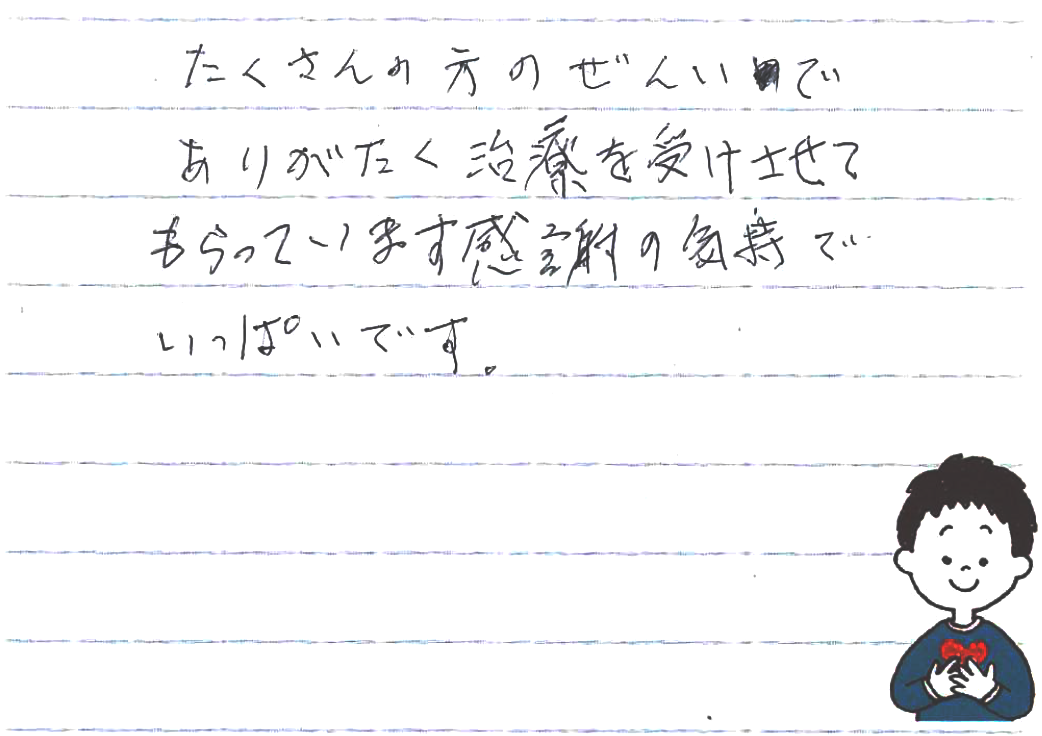 たくさんの方のぜんいで
ありがたく治療を受けさせて
もらっています感謝の気持で
いっぱいです。